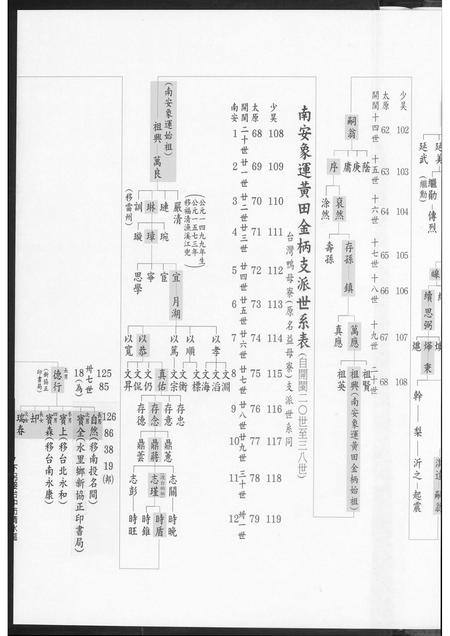 少昊 102 103 104 105 106 107 108
太原 62 63 64 65 66 67 68
開閩 十四世 十五世 十六世 十七世 十八世 十九世 二十世
嗣翁
序 庸 庚 蔭
涂然 裒然
壽孫 存孫
鎮
真應 萬應
祖英 祖興(南安象運黃田金柄始祖) 祖賢
延武 延美
繼勛 偉烈
續 思弼
幹 梨 沂之 起震
南安象運黃田金柄支派世系表(自開閩二〇世至三八世)
台灣鴨母寮(原名益母寮)支派世系同
少昊 108 109 110 111 112 113 114 115 116 117 118 119
太原 68 69 70 71 72 73 74 75 76 77 78 79
開閩 二十世 廿一世 廿二世 廿三世 廿四世 廿五世 廿六世 廿七世 廿八世 廿九世 三十世 卅一世
南安 1 2 3 4 5 6 7 8 9 10 11 12
(南安象運始祖)
祖興 萬良
(公元一四九九年生)
(公元一五七三年移福清漁溪江兜)
(移雷州)
訓 琳 璉 嚴清
璇 璋 琬
思學 寧 宦 宜
月湖
以寬 以恭 以篤 以順 以孝
文昇 文侃 文仍 真佑 文宗 文衡 文標 文海 文滔 文淵
存德 存念 存意 存忠
鼎蕓 鼎蔣 鼎蕙
志彭 志瑾 志關
時旺 時錐 時盾 時晚
卅七世
125
85
18(為)
德行
(新協正印書局)
126
86
38
19(邦)
自然(移南投名間)
寶全(水里鄉新協正印書局)
寶上(移台北永和)
寶森(移台南永康)
瑞春